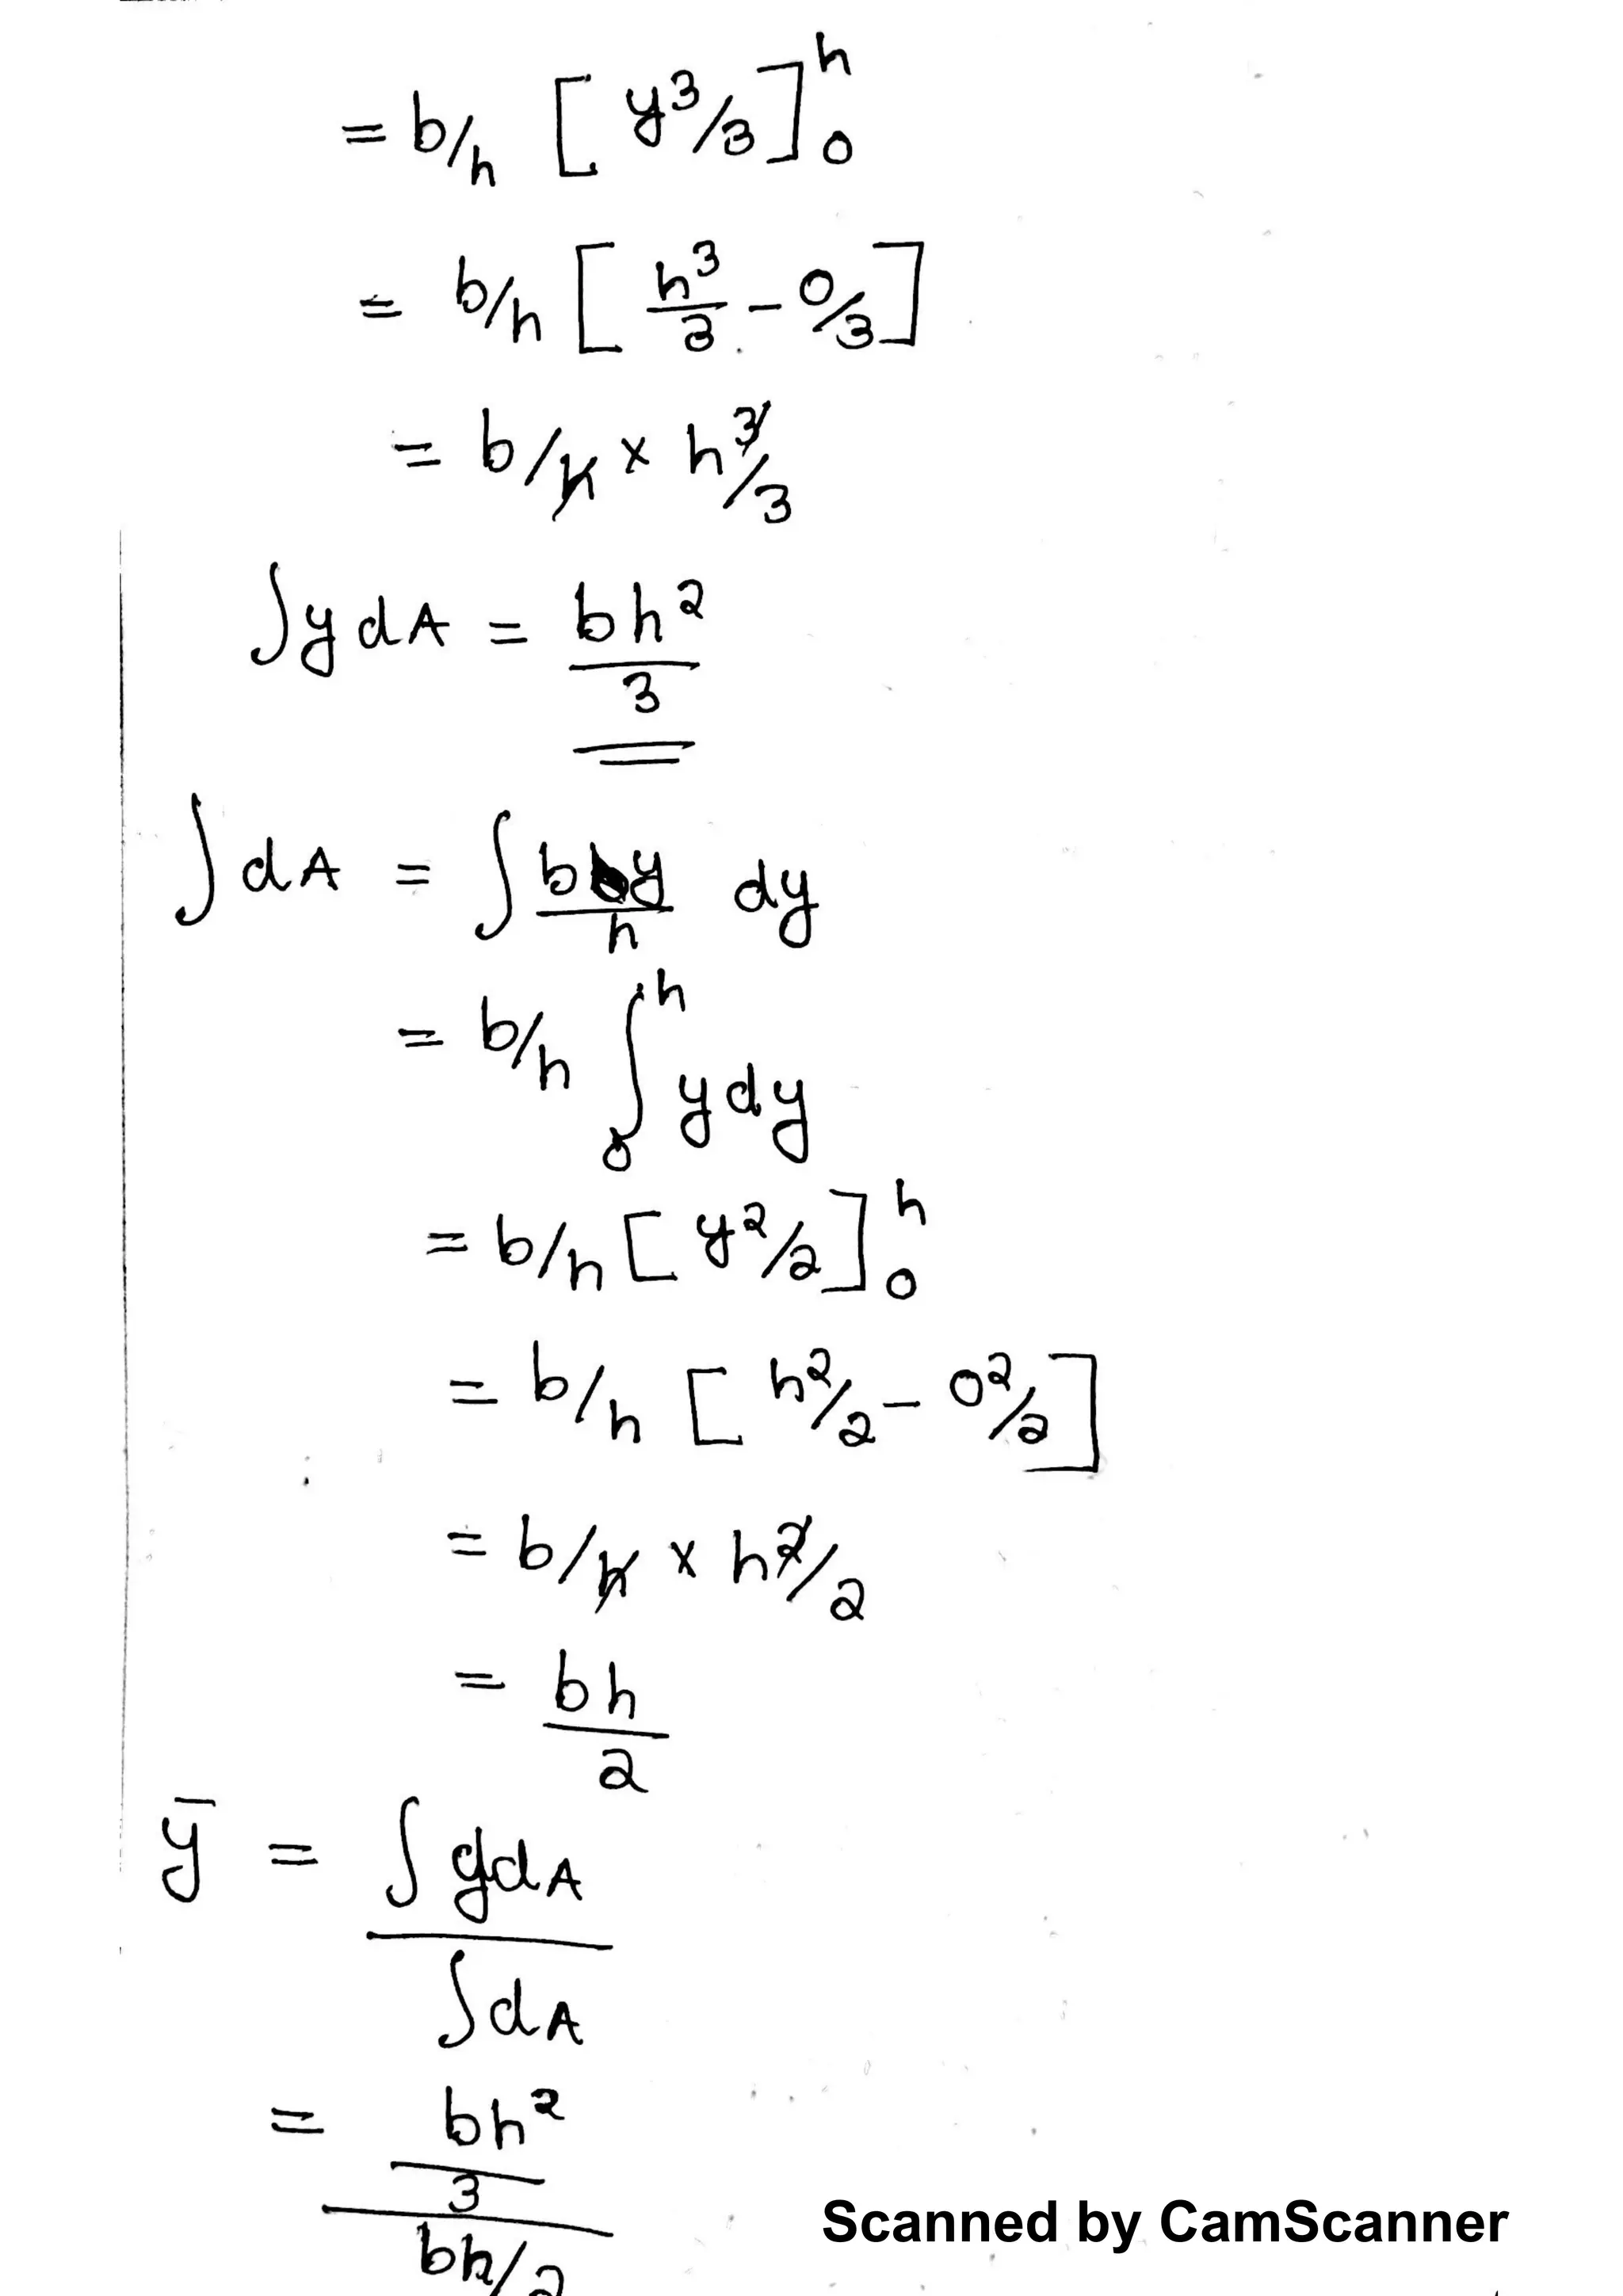 = b/h [ y³/3 ]₀ʰ
= b/h [ h³/3 - 0/3 ]
= b/h × h³/3
∫ y dA = bh²/3
∫ dA = ∫ by/h dy
= b/h ∫₀ʰ y dy
= b/h [ y²/2 ]₀ʰ
= b/h [ h²/2 - 0²/2 ]
= b/h × h²/2
= bh/2
ȳ = ∫ y dA / ∫ dA
= bh²/3 / bh/2
Scanned by CamScanner